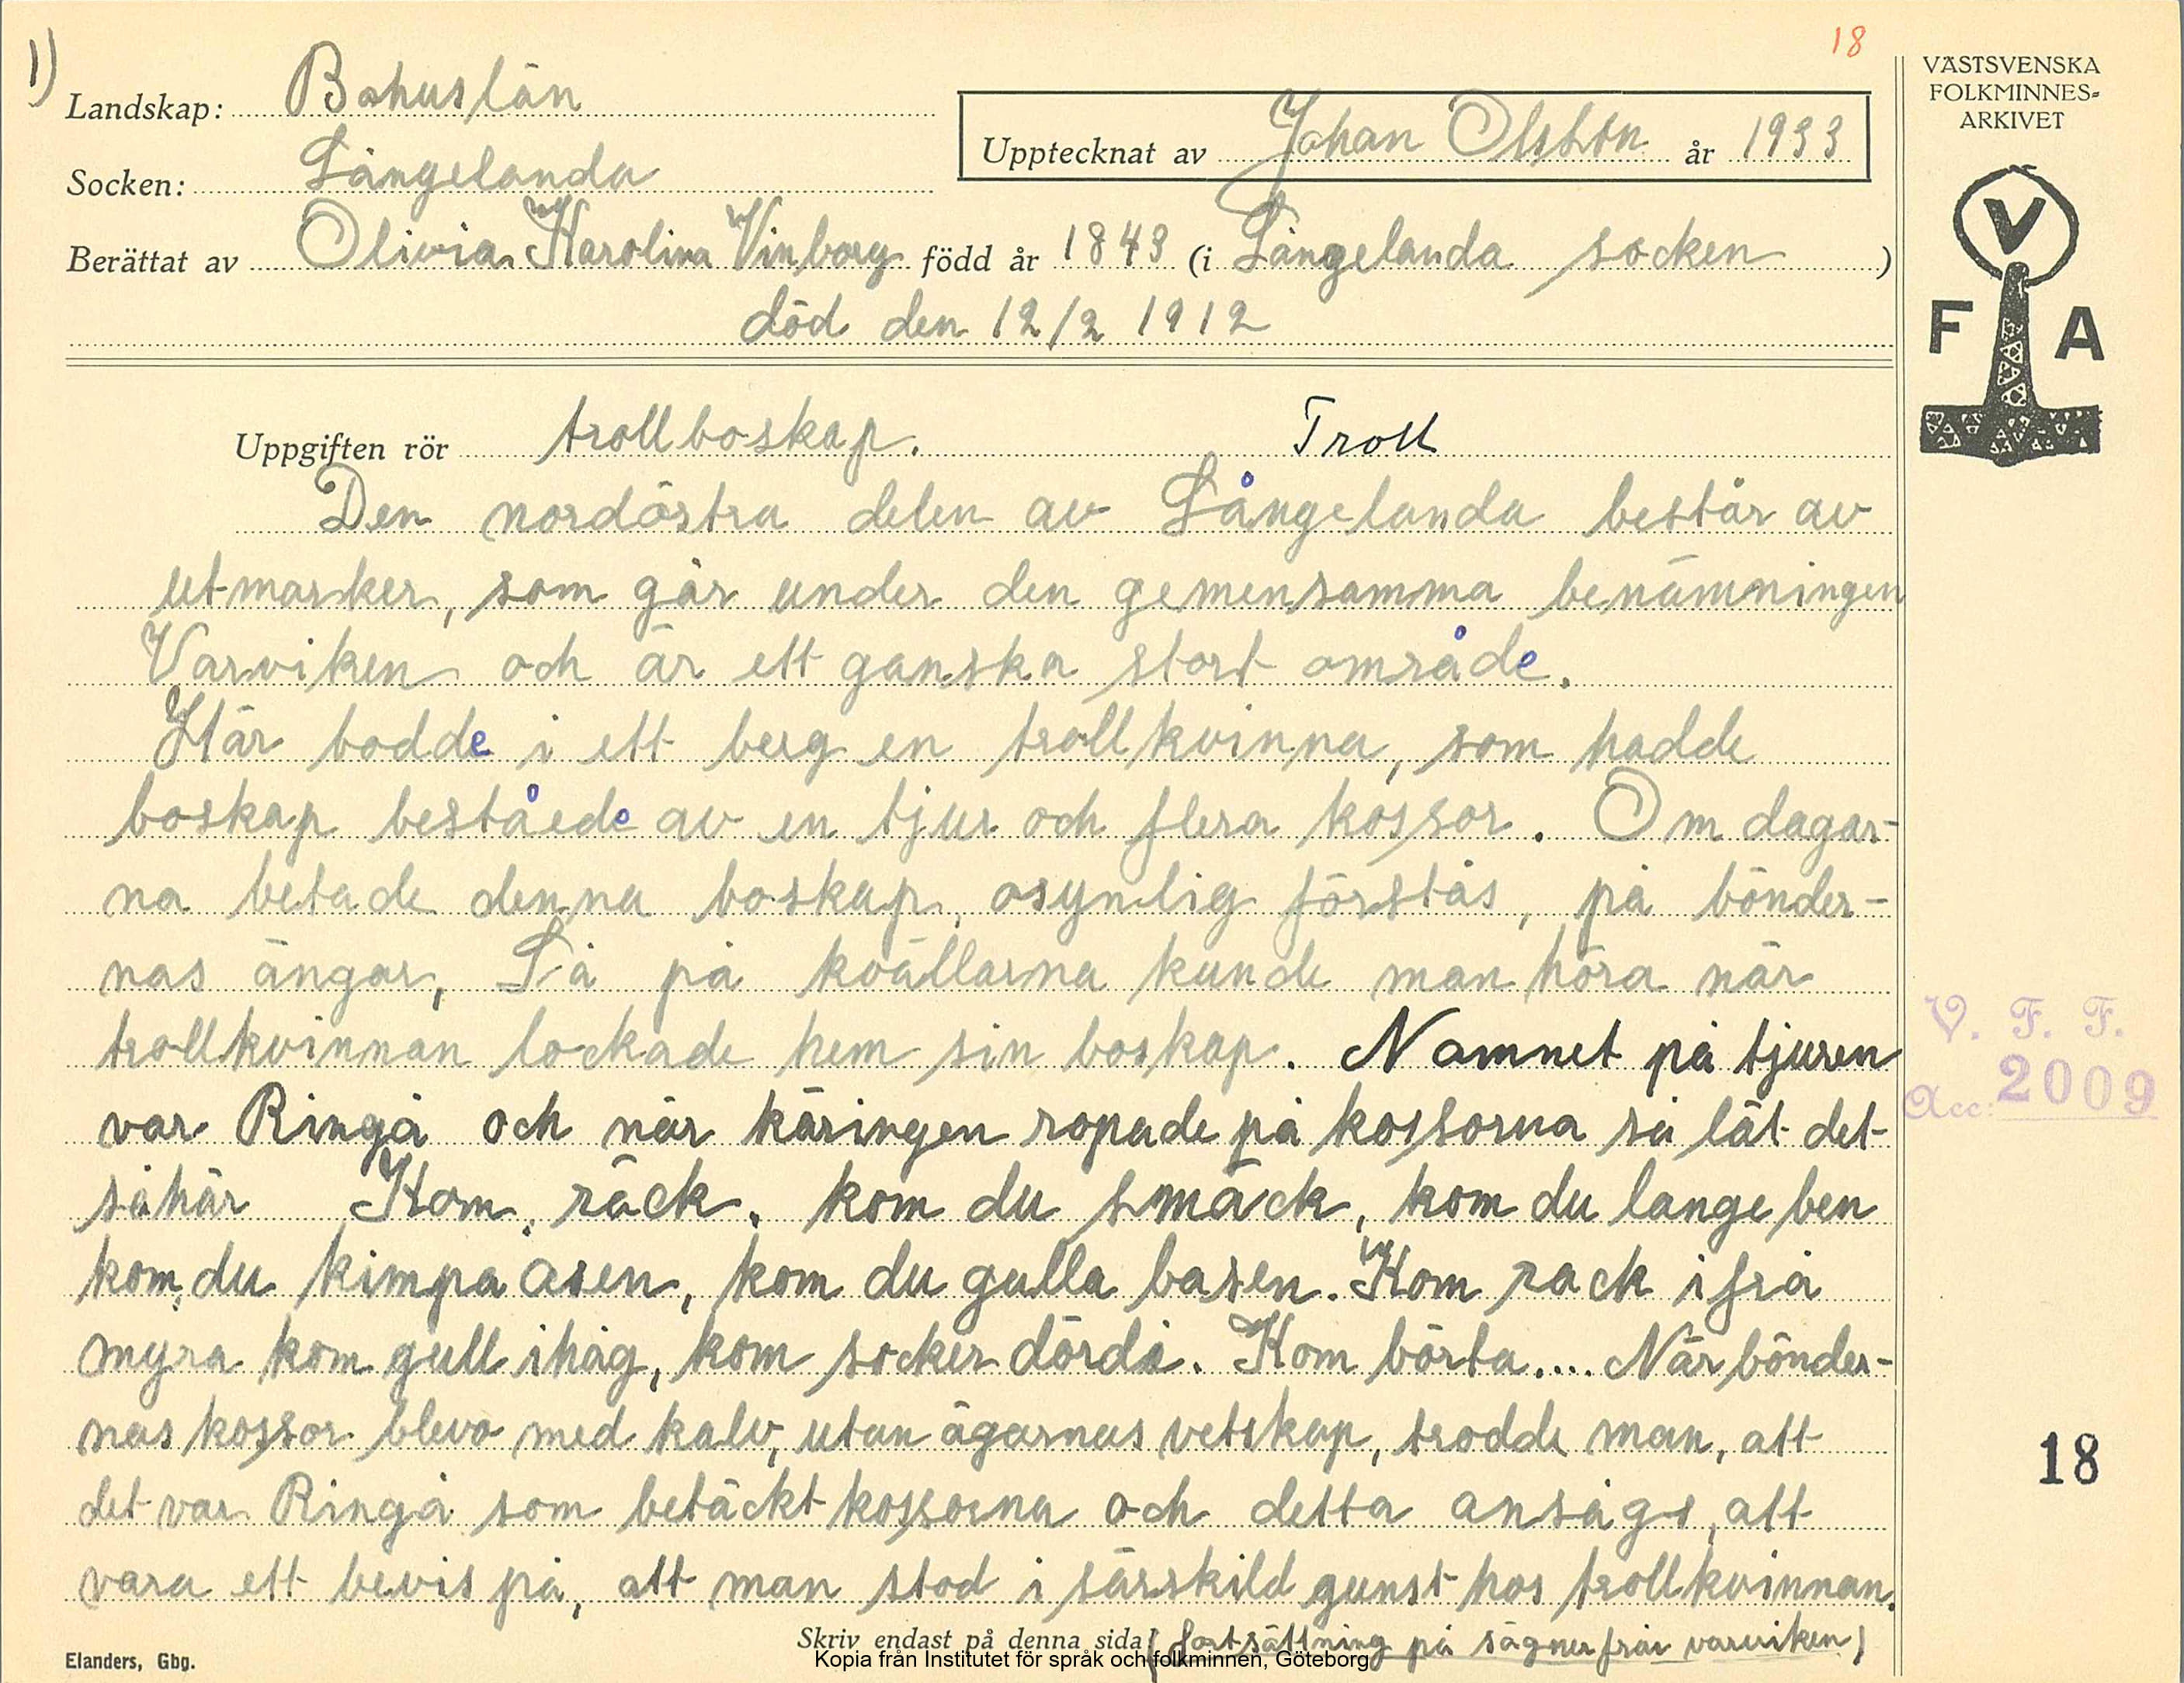 18
1)
Landskap: Bohuslän
Socken: Långelanda
Upptecknat av Johan Olsson år 1933
Berättat av Olivia Karolina Vinborg född år 1843 (i Långelanda socken)
död den 12/2 1912
VÄSTSVENSKA
FOLKMINNES-
ARKIVET
V
F A
Uppgiften rör trollboskap. Troll
Den nordöstra delen av Långelanda består av
utmarker, som går under den gemensamma benämningen
Varviken och är ett ganska stort område.
Här bodde i ett berg en trollkvinna, som hadde
boskap beståede av en tjur och flera kossor. Om dagar-
na betade denna boskap, osynlig förstås, på bönder-
nas ängar, Så på kvällarna kunde man höra när
trollkvinnan lockade hem sin boskap. Namnet på tjuren
var Ringå och när käringen ropade på kossorna så lät det
såhär Kom, räck, kom du smäck, kom du lange ben
kom, du kimpa åsen, kom du gulla basen. Kom rack ifrå
myra kom gull ihåg, kom socker dördå. Kom börta.... När bönder-
nas kossor blevo med kalv, utan ägarnas vetskap, trodde man, att
det var Ringå som betäckt kossorna och detta ansågs, att
vara ett bevis på, att man stod i särskild gunst hos trollkvinnan.
V. F. F.
Acc: 2009
18
Skriv endast på denna sida! (fortsättning på sägner från varviken)
Kopia från Institutet för språk och folkminnen, Göteborg
Elanders, Gbg.